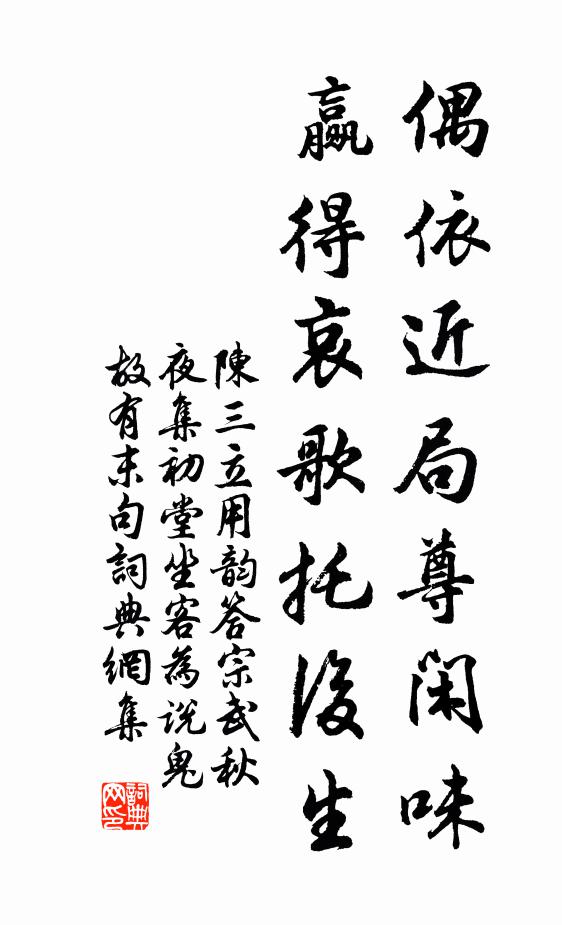 偶依近局尊閑味
贏得哀歌托後生
陳三立用韵答宗武秋
夜集初堂坐客為説鬼
故有末句詞典網集
詞典网印